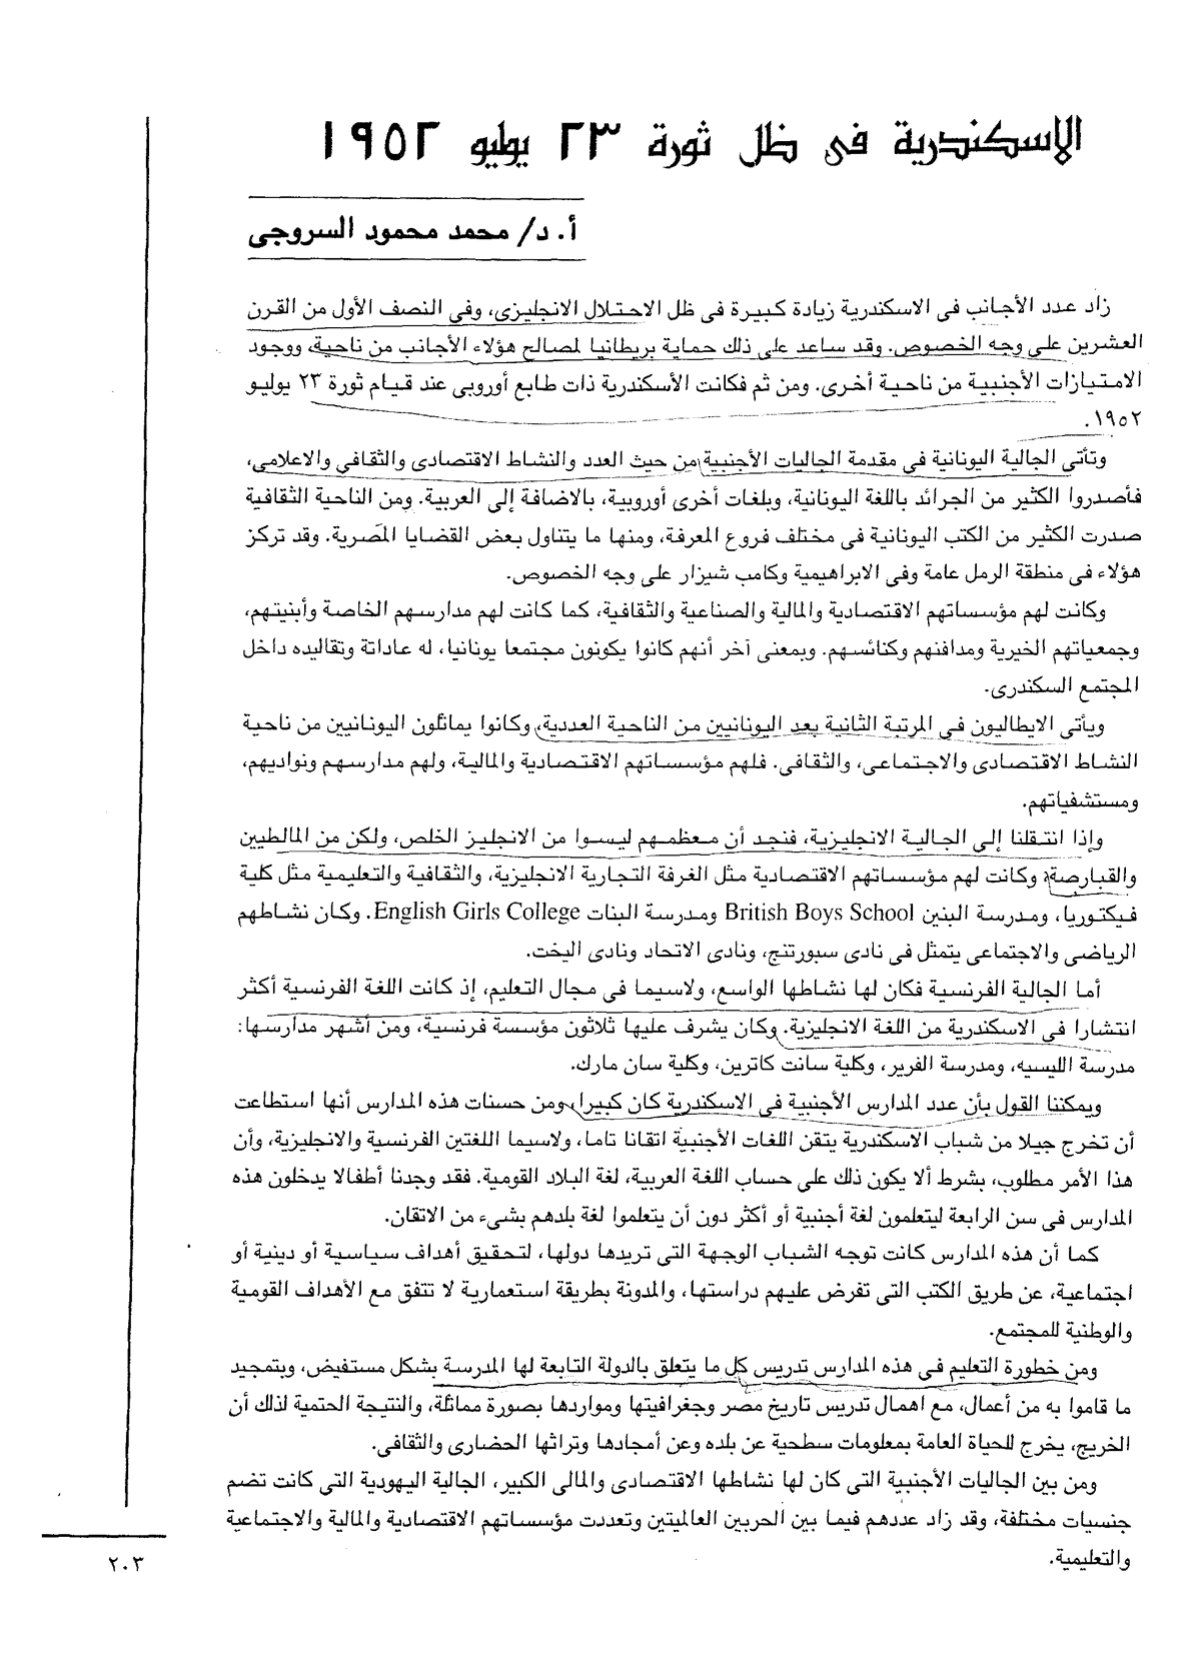 الاسكندرية فى ظل ثورة ٢٣ يوليو ١٩٥٢
أ. د/ محمد محمود السروجى
زاد عدد الأجانب فى الاسكندرية زيادة كبيرة فى ظل الاحتلال الانجليزى، وفى النصف الأول من القرن
العشرين على وجه الخصوص. وقد ساعد على ذلك حماية بريطانيا لمصالح هؤلاء الأجانب من ناحية، ووجود
الامتيازات الأجنبية من ناحية أخرى. ومن ثم فكانت الأسكندرية ذات طابع أوروبى عند قيام ثورة ٢٣ يوليو
١٩٥٢.
وتأتى الجالية اليونانية فى مقدمة الجاليات الأجنبية من حيث العدد والنشاط الاقتصادى والثقافى والاعلامى،
فأصدروا الكثير من الجرائد باللغة اليونانية، وبلغات أخرى أوروبية، بالاضافة إلى العربية. ومن الناحية الثقافية
صدرت الكثير من الكتب اليونانية فى مختلف فروع المعرفة، ومنها ما يتناول بعض القضايا المصرية. وقد تركز
هؤلاء فى منطقة الرمل عامة وفى الابراهيمية وكامب شيزار على وجه الخصوص.
وكانت لهم مؤسساتهم الاقتصادية والمالية والصناعية والثقافية، كما كانت لهم مدارسهم الخاصة وأبنيتهم،
وجمعياتهم الخيرية ومدافنهم وكنائسهم. وبمعنى آخر أنهم كانوا يكونون مجتمعا يونانيا، له عاداتة وتقاليده داخل
المجتمع السكندرى.
ويأتى الايطاليون فى المرتبة الثانية بعد اليونانيين من الناحية العددية، وكانوا يماثلون اليونانيين من ناحية
النشاط الاقتصادى والاجتماعى، والثقافى. فلهم مؤسساتهم الاقتصادية والمالية، ولهم مدارسهم ونواديهم،
ومستشفياتهم.
وإذا انتقلنا إلى الجالية الانجليزية، فنجد أن معظمهم ليسوا من الانجليز الخلص، ولكن من المالطيين
والقبارصة، وكانت لهم مؤسساتهم الاقتصادية مثل الغرفة التجارية الانجليزية، والثقافية والتعليمية مثل كلية
فيكتوريا، ومدرسة البنين British Boys School ومدرسة البنات English Girls College. وكان نشاطهم
الرياضى والاجتماعى يتمثل فى نادى سبورتنج، ونادى الاتحاد ونادى اليخت.
أما الجالية الفرنسية فكان لها نشاطها الواسع، ولاسيما فى مجال التعليم، إذ كانت اللغة الفرنسية أكثر
انتشارا فى الاسكندرية من اللغة الانجليزية. وكان يشرف عليها ثلاثون مؤسسة فرنسية، ومن أشهر مدارسها:
مدرسة الليسيه، ومدرسة الفرير، وكلية سانت كاترين، وكلية سان مارك.
ويمكننا القول بأن عدد المدارس الأجنبية فى الاسكندرية كان كبيرا، ومن حسنات هذه المدارس أنها استطاعت
أن تخرج جيلا من شباب الاسكندرية يتقن اللغات الأجنبية اتقانا تاما، ولاسيما اللغتين الفرنسية والانجليزية، وأن
هذا الأمر مطلوب، بشرط ألا يكون ذلك على حساب اللغة العربية، لغة البلاد القومية. فقد وجدنا أطفالا يدخلون هذه
المدارس فى سن الرابعة ليتعلمون لغة أجنبية أو أكثر دون أن يتعلموا لغة بلدهم بشىء من الاتقان.
كما أن هذه المدارس كانت توجه الشباب الوجهة التى تريدها دولها، لتحقيق أهداف سياسية أو دينية أو
اجتماعية، عن طريق الكتب التى تفرض عليهم دراستها، والمدونة بطريقة استعمارية لا تتفق مع الأهداف القومية
والوطنية للمجتمع.
ومن خطورة التعليم فى هذه المدارس تدريس كل ما يتعلق بالدولة التابعة لها المدرسة بشكل مستفيض، وبتمجيد
ما قاموا به من أعمال، مع اهمال تدريس تاريخ مصر وجغرافيتها ومواردها بصورة مماثلة، والنتيجة الحتمية لذلك أن
الخريج، يخرج للحياة العامة بمعلومات سطحية عن بلده وعن أمجادها وتراثها الحضارى والثقافى.
ومن بين الجاليات الأجنبية التى كان لها نشاطها الاقتصادى والمالى الكبير، الجالية اليهودية التى كانت تضم
جنسيات مختلفة، وقد زاد عددهم فيما بين الحربين العالميتين وتعددت مؤسساتهم الاقتصادية والمالية والاجتماعية
والتعليمية.
٢٠٣